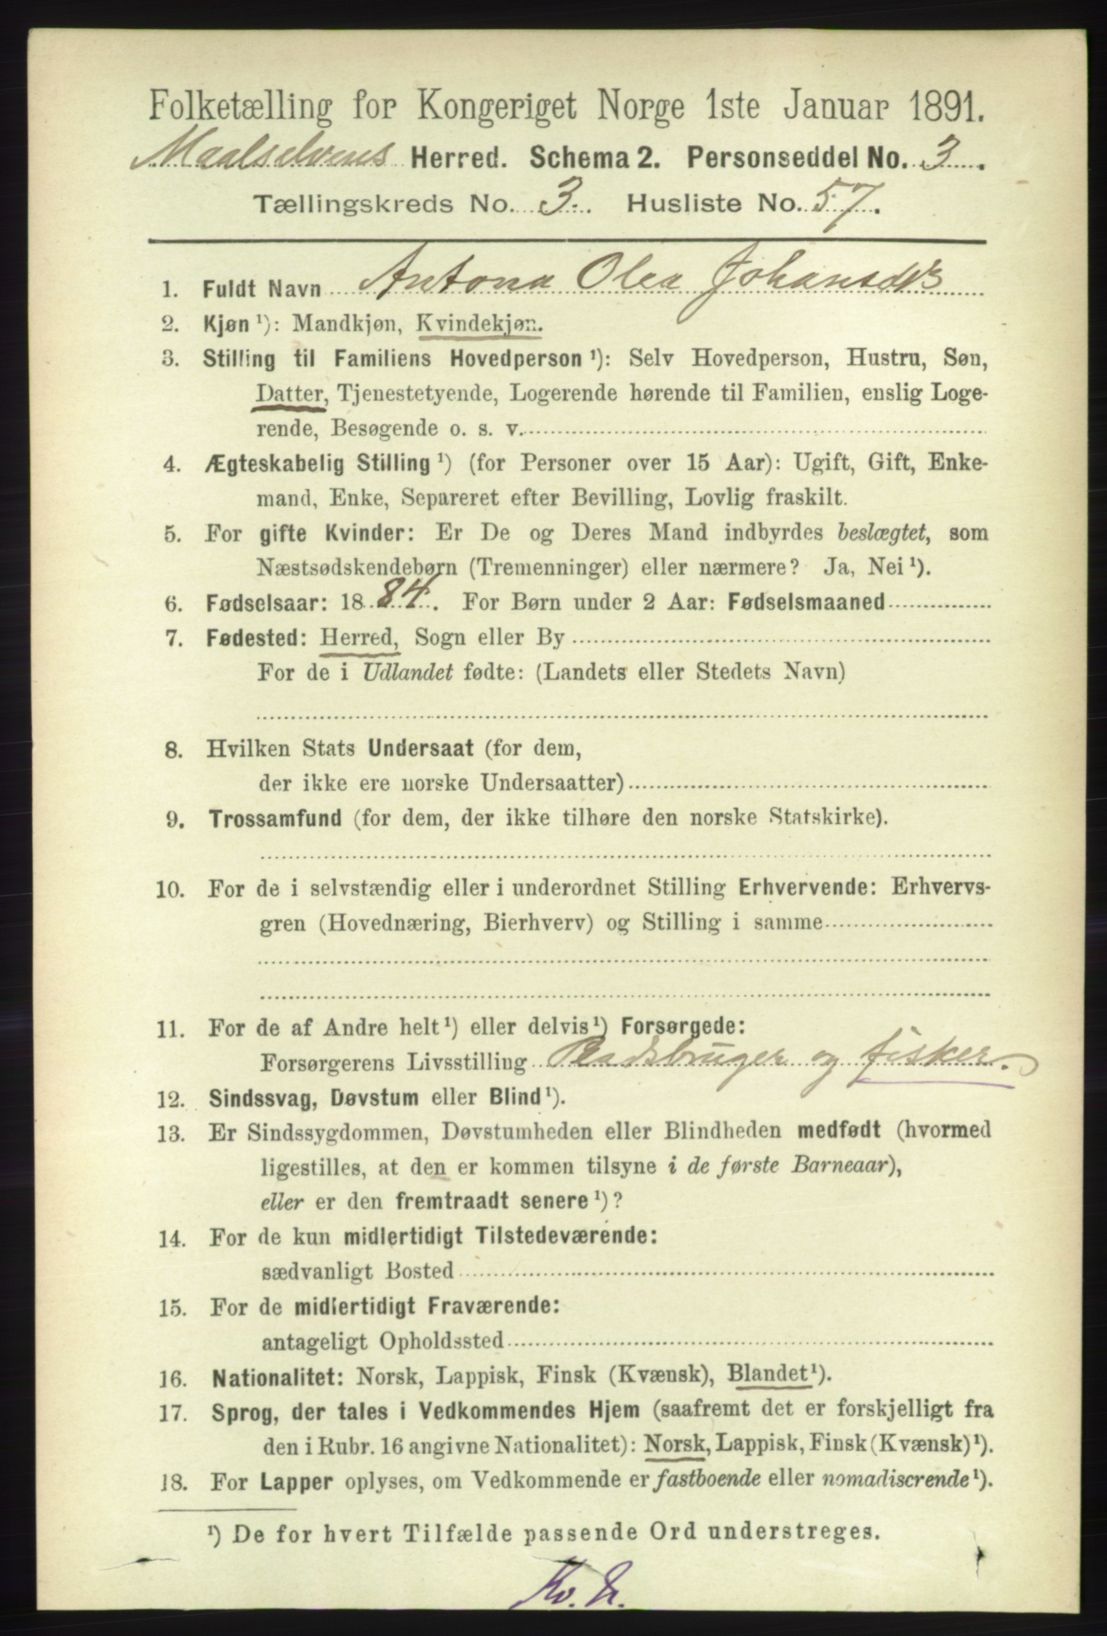 Folketælling for Kongeriget Norge 1ste Januar 1891.
Maalselvens Herred. Schema 2. Personseddel No. 3.
Tællingskreds No. 3. Husliste No. 57.
1. Fuldt Navn Antona Olea Johansdtr
2. Kjøn ¹): Mandkjøn, Kvindekjøn.
3. Stilling til Familiens Hovedperson ¹): Selv Hovedperson, Hustru, Søn,
Datter, Tjenestetyende, Logerende hørende til Familien, enslig Loge-
rende, Besøgende o. s. v.
4. Ægteskabelig Stilling ¹) (for Personer over 15 Aar): Ugift, Gift, Enke-
mand, Enke, Separeret efter Bevilling, Lovlig fraskilt.
5. For gifte Kvinder: Er De og Deres Mand indbyrdes beslægtet, som
Næstsødskendebørn (Tremenninger) eller nærmere? Ja, Nei ¹).
6. Fødselsaar: 1884. For Børn under 2 Aar: Fødselsmaaned
7. Fødested: Herred, Sogn eller By
For de i Udlandet fødte: (Landets eller Stedets Navn)
8. Hvilken Stats Undersaat (for dem,
der ikke ere norske Undersaatter)
9. Trossamfund (for dem, der ikke tilhøre den norske Statskirke).
10. For de i selvstændig eller i underordnet Stilling Erhvervende: Erhvervs-
gren (Hovednæring, Bierhverv) og Stilling i samme
11. For de af Andre helt ¹) eller delvis ¹) Forsørgede:
Forsørgerens Livsstilling Pladsbruger og fisker.
12. Sindssvag, Døvstum eller Blind ¹).
13. Er Sindssygdommen, Døvstumheden eller Blindheden medfødt (hvormed
ligestilles, at den er kommen tilsyne i de første Barneaar),
eller er den fremtraadt senere ¹)?
14. For de kun midlertidigt Tilstedeværende:
sædvanligt Bosted
15. For de midlertidigt Fraværende:
antageligt Opholdssted
16. Nationalitet: Norsk, Lappisk, Finsk (Kvænsk), Blandet ¹).
17. Sprog, der tales i Vedkommendes Hjem (saafremt det er forskjelligt fra
den i Rubr. 16 angivne Nationalitet): Norsk, Lappisk, Finsk (Kvænsk) ¹).
18. For Lapper oplyses, om Vedkommende er fastboende eller nomadiserende ¹).
¹) De for hvert Tilfælde passende Ord understreges.